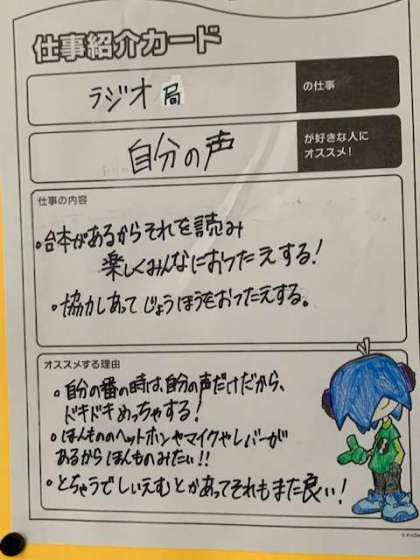 仕事紹介カード
ラジオ局
の仕事
自分の声
が好きな人に
オススメ!
仕事の内容
・台本があるからそれを読み
楽しくみんなにおつたえする!
・協力しあってじょうほうをおつたえする。
オススメする理由
・自分の番の時は、自分の声だけだから、
ドキドキめっちゃする!
・ほんもののヘッドホンやマイクやレバーが
あるからほんものみたい!!
・とちゅうでしいえむとかあってそれもまた良い!